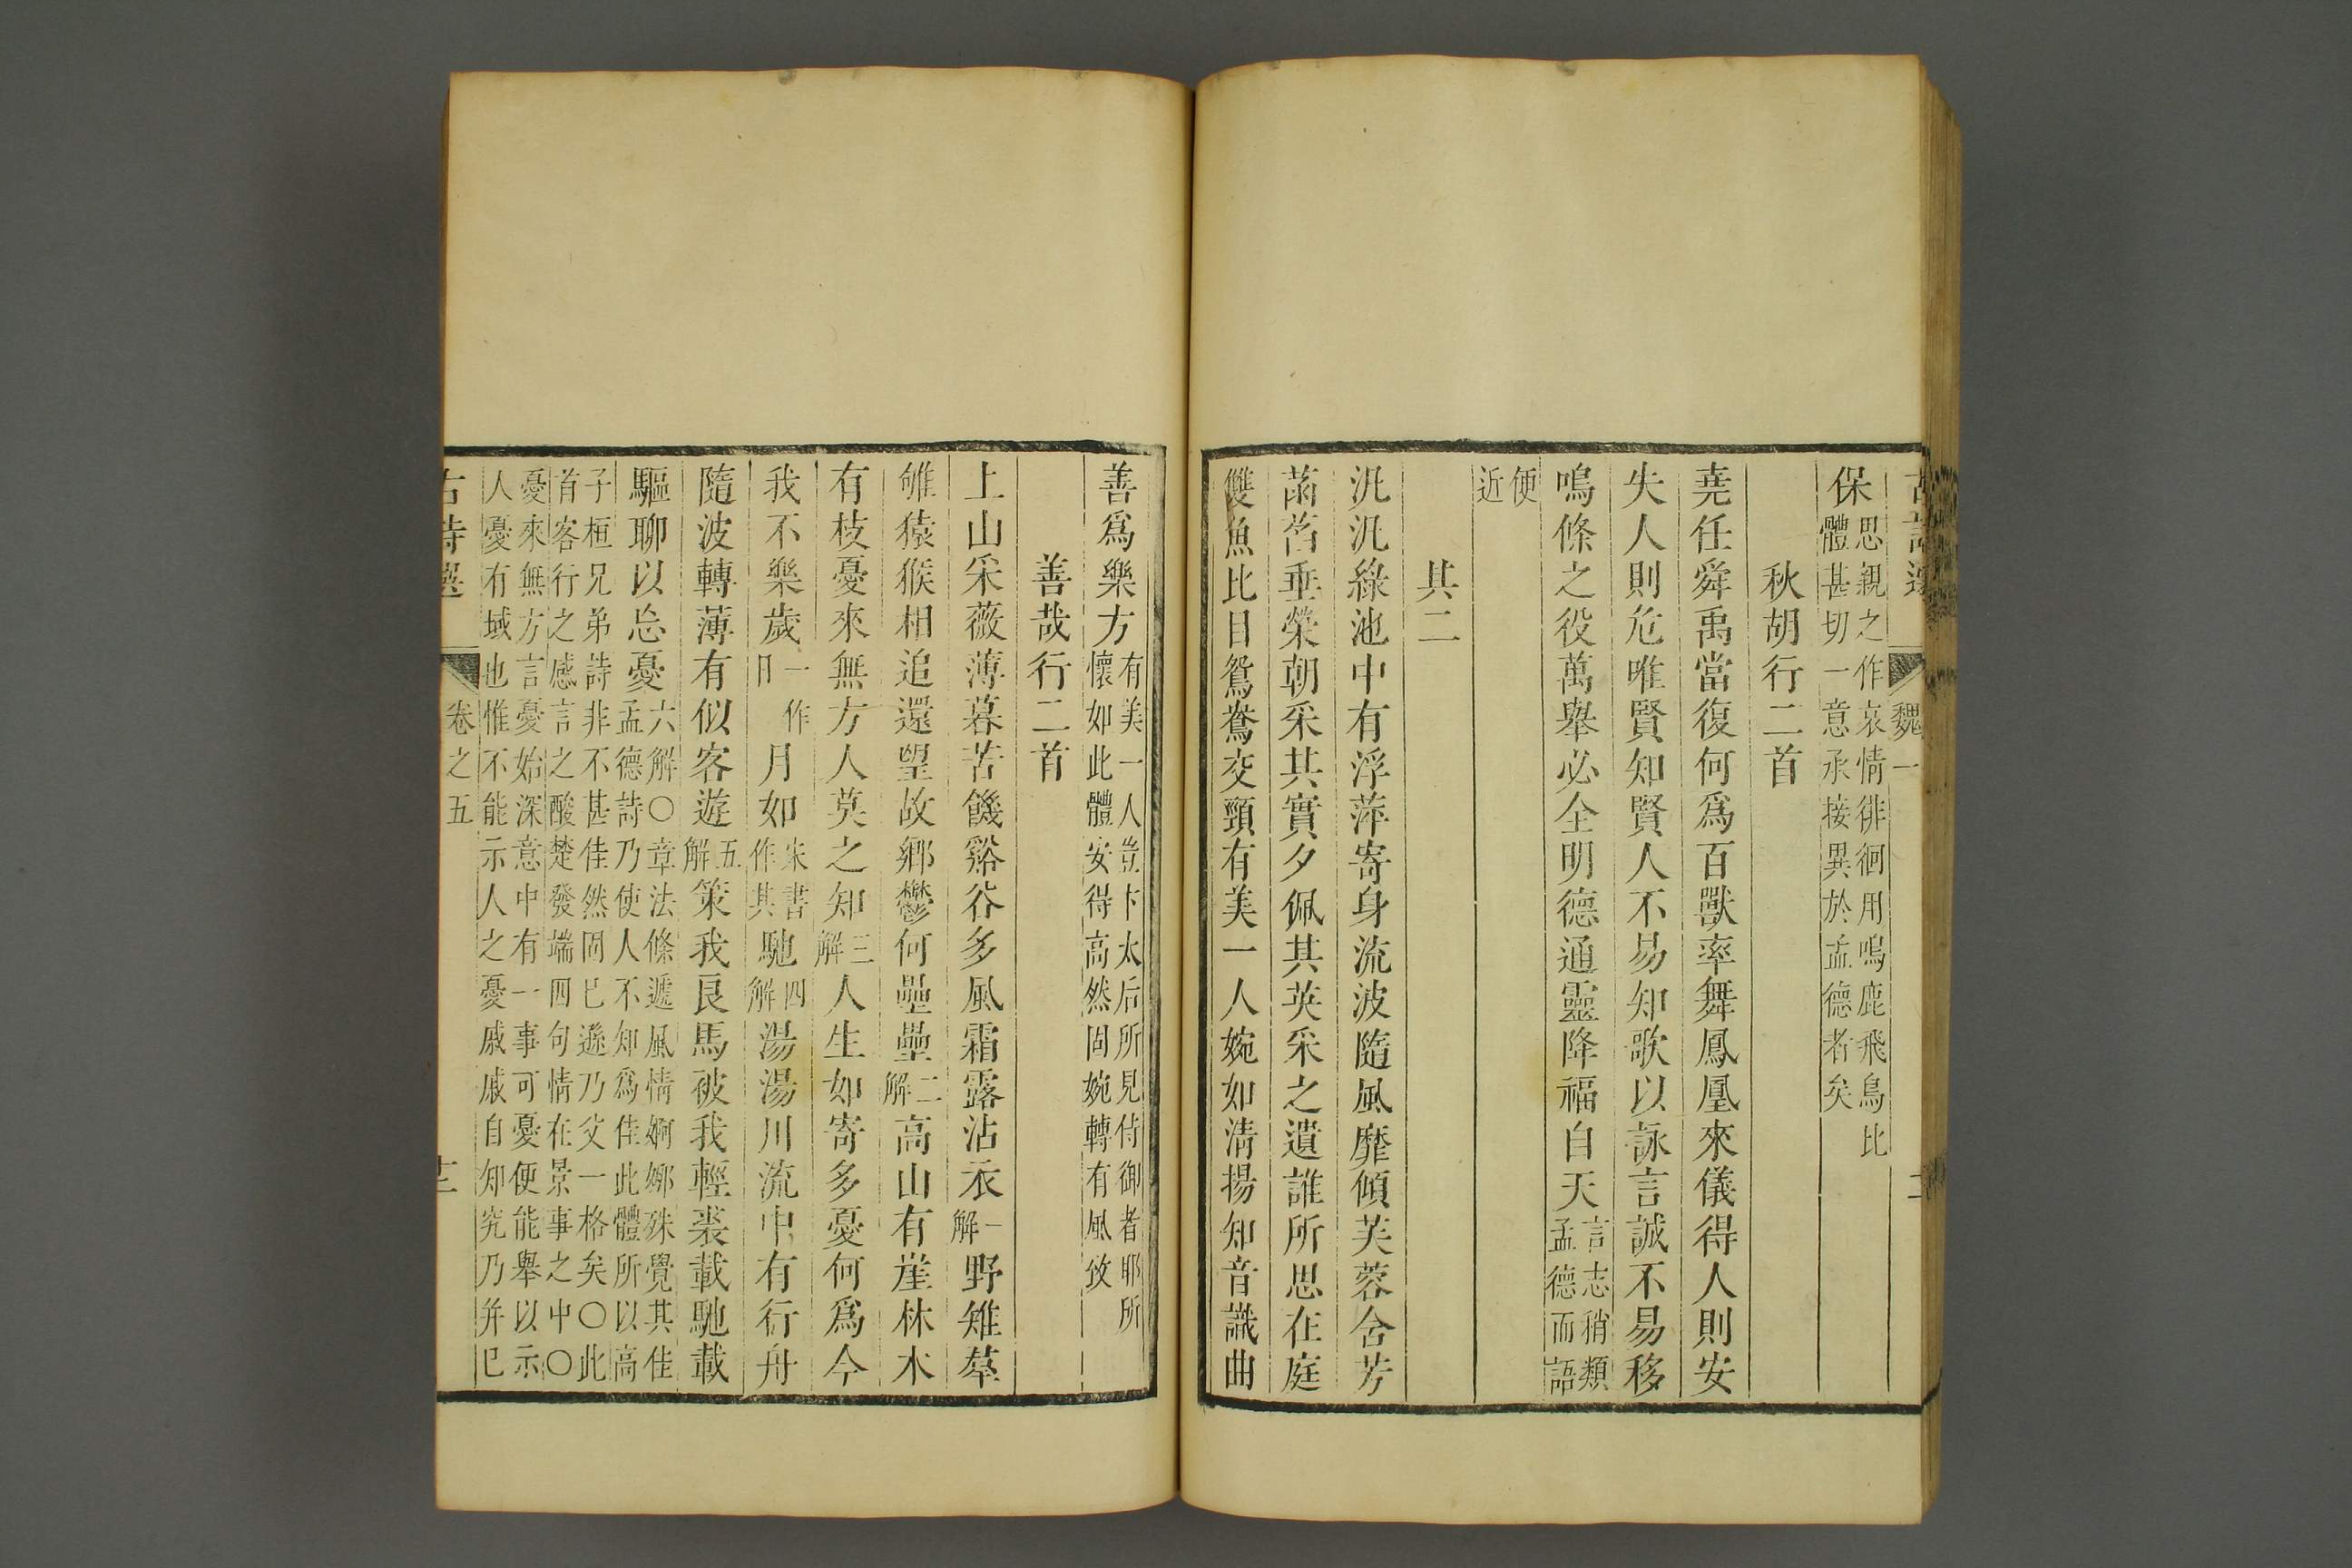 魏一
保思親之作哀情徘徊用鳴鹿飛鳥比
體甚切一意承接異於孟德者矣
秋胡行二首
堯任舜禹當復何爲百獸率舞鳳凰來儀得人則安
失人則危唯賢知賢人不易知歌以詠言誠不易移
鳴條之役萬舉必全明德通靈降福自天言志稍類
孟德而語
便
近
其二
汎汎綠池中有浮萍寄身流波隨風靡傾芙蓉含芳
菡萏垂榮朝采其實夕佩其英采之遺誰所思在庭
雙魚比目鴛鴦交頸有美一人婉如淸揚知音識曲
善爲樂方有美一人豈卞太后所見侍御者耶所
懷如此體安得高然固婉轉有風致
善哉行二首
上山采薇薄暮苦饑谿谷多風霜露沾衣一解野雉羣
雊猿猴相追還望故鄉鬱何壘壘二解高山有崖林木
有枝憂來無方人莫之知三解人生如寄多憂何爲今
我不樂歲一作月如宋書作其馳四解湯湯川流中有行舟
隨波轉薄有似客遊五解策我良馬被我輕裘載馳載
驅聊以忘憂六解○章法條遞風情婀娜殊覺其佳
孟德詩乃使人不知爲佳此體所以高
子桓兄弟詩非不甚佳然固已遜乃父一格矣○此
首客行之感言之酸楚發端四句情在景事之中○
憂來無方言憂始深意中有一事可憂便能舉以示
人憂有域也惟不能示人之憂戚戚自知究乃幷已
古詩選
卷之五